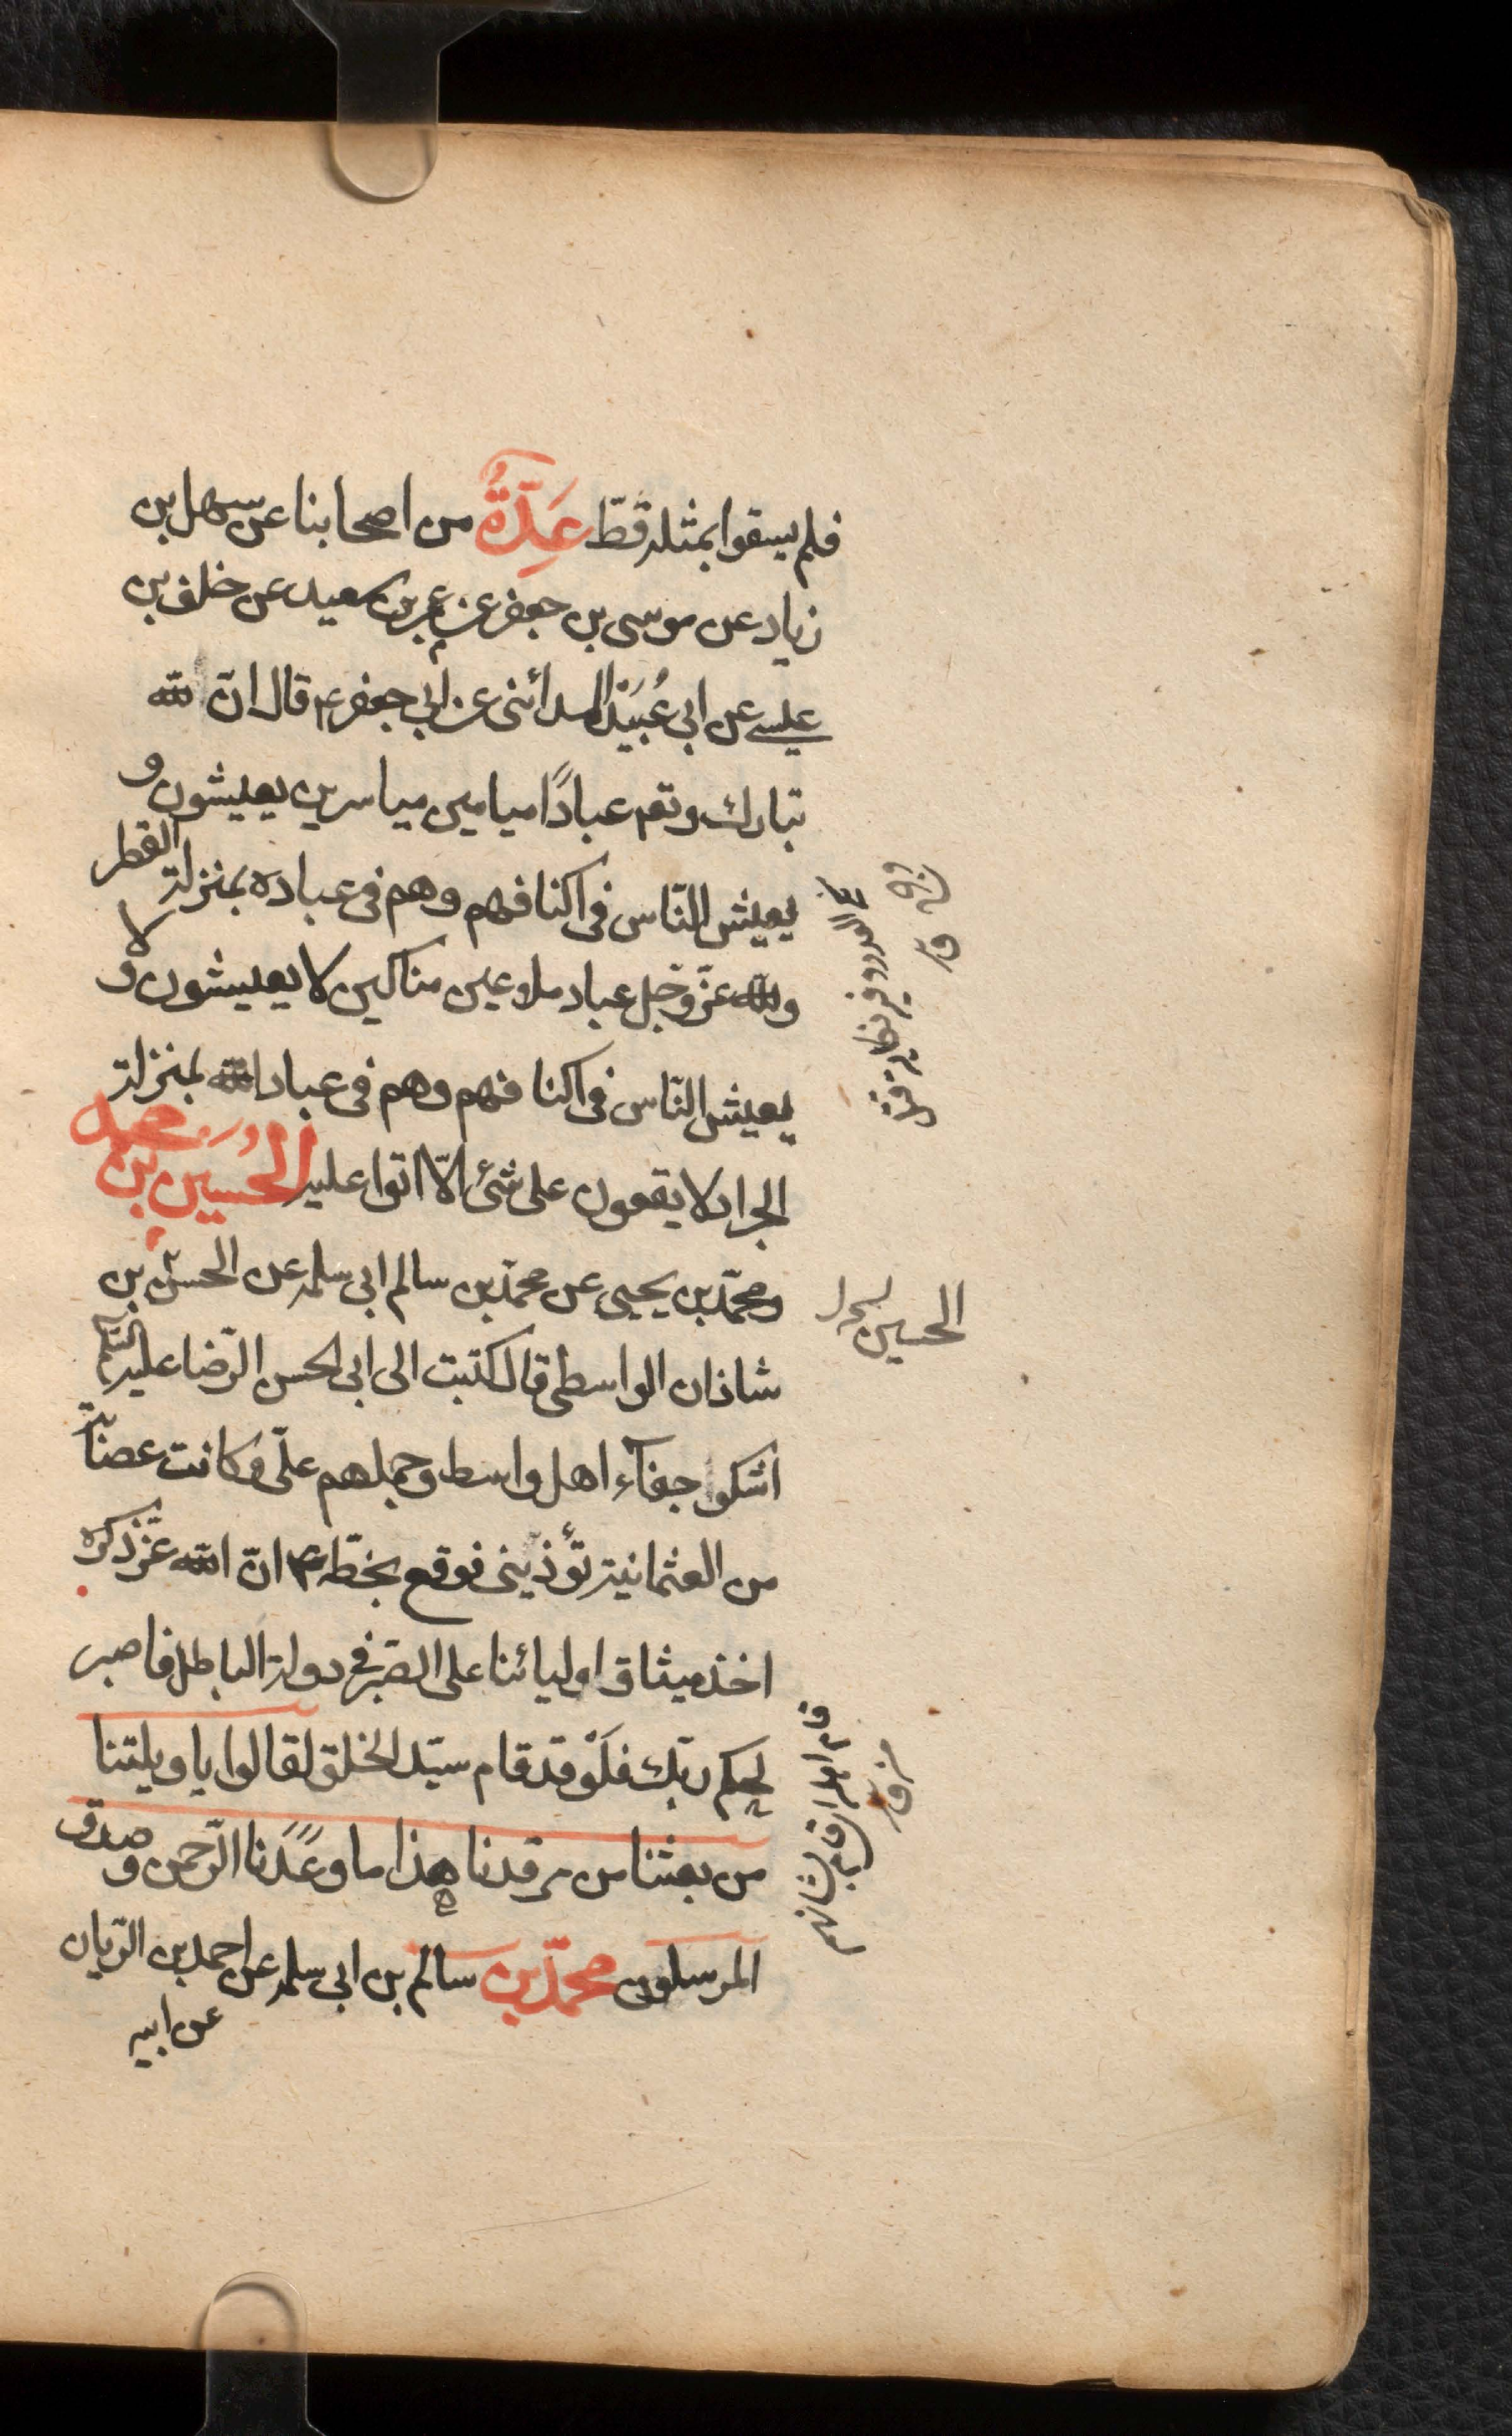 فلم يسقوا بمثله قطّ عِدَّةٌ من اصحابنا عن سهل بن
زياد عن موسى بن جعفر عن عمرو بن سعيد عن خلف بن
عيسى عن ابى عُبَيْد المدائنى عن ابى جعفر ع قال ان لله
تبارك وتع عبادًا ميامين مياسرين يعيشون و
يعيش النّاس فى اكنافهم وهم فى عباده بمنزلة القطر
ولله عزّ وجل عباد ملاعين مناكين لا يعيشون ولا
يعيش النّاس فى اكنافهم وهم فى عباد الله بمنزلة
الجراد لا يقعون على شئ الّا اتوا عليه الحُسَين بن محمد
ومحمّد بن يحيى عن محمّد بن سالم ابى سلمه عن الحسن بن
شاذان الواسطى قال كتبت الى ابى الحسن الرّضا عليه السلم
اشكوا جفآء اهل واسط وحملهم علىّ وكانت عصابة
من العثمانية تؤذينى فوقع بخطّه ع انّ الله عزّ ذكره
اخذ ميثاق اوليائنا على الصّبر فى دولة الباطل فاصبر
لحكم ربّك فلَوْ قد قام سيّد الخلق لقالوا يا ويلتنا
من بعثنا من مرقدنا هذا ما وعَدَنا الرّحمن وصدق
المرسلون محمّد بن سالم بن ابى سلمه عن احمد بن الريان
عن ابيه
الحسين